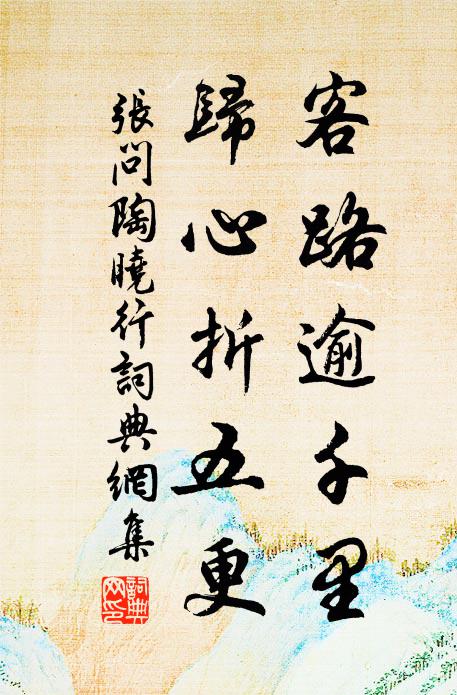 客路逾千里
歸心折五更
張問陶曉行詞典網集
詞典网印